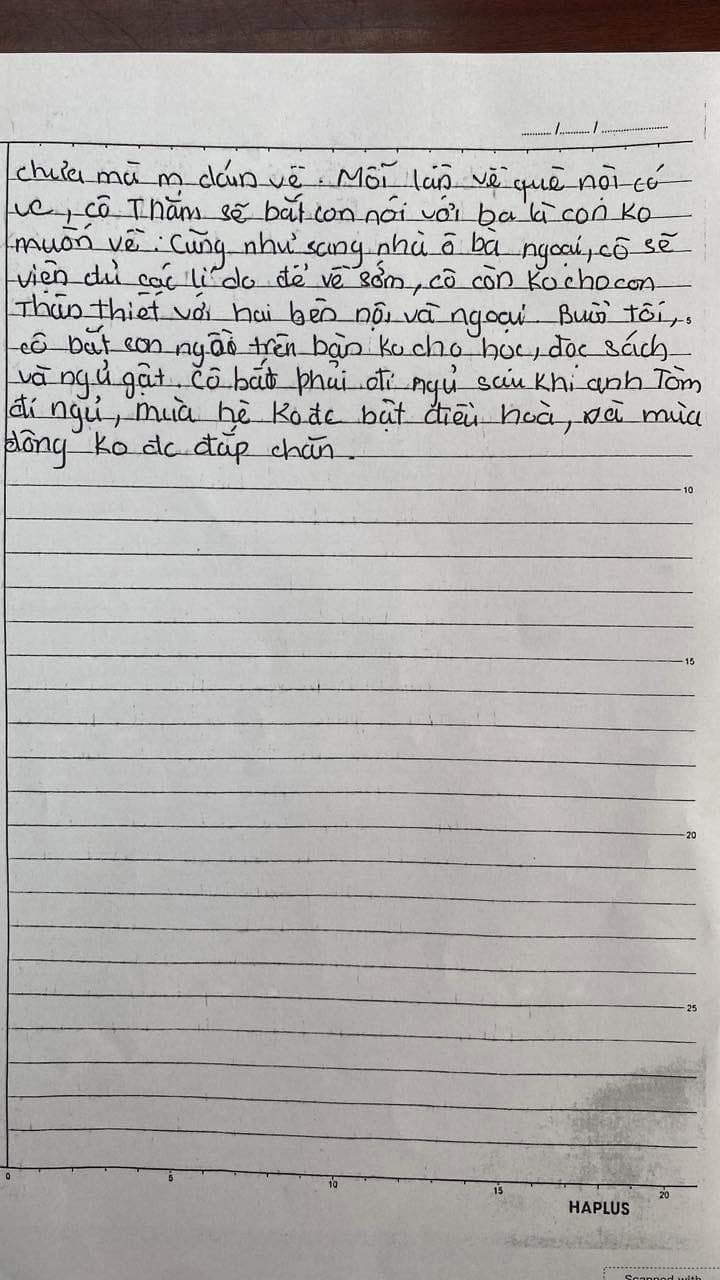 ....../....../............
chưa mà m dám về. Mỗi lần về quê nội có
vc, cô Thắm sẽ bắt con nói với ba là con ko
muốn về. Cũng như sang nhà ô bà ngoại, cô sẽ
viện đủ các lí do để về sớm, cô còn ko cho con
thân thiết với hai bên nội và ngoại. Buổi tối,
cô bắt con ngồi trên bàn ko cho học, đọc sách
và ngủ gật. Cô bắt phải đi ngủ sau khi anh Tôm
đi ngủ, mùa hè ko đc bật điều hoà, và mùa
đông ko đc đắp chăn.
10
15
20
25
0 5 10 15 20
HAPLUS
Scanned with